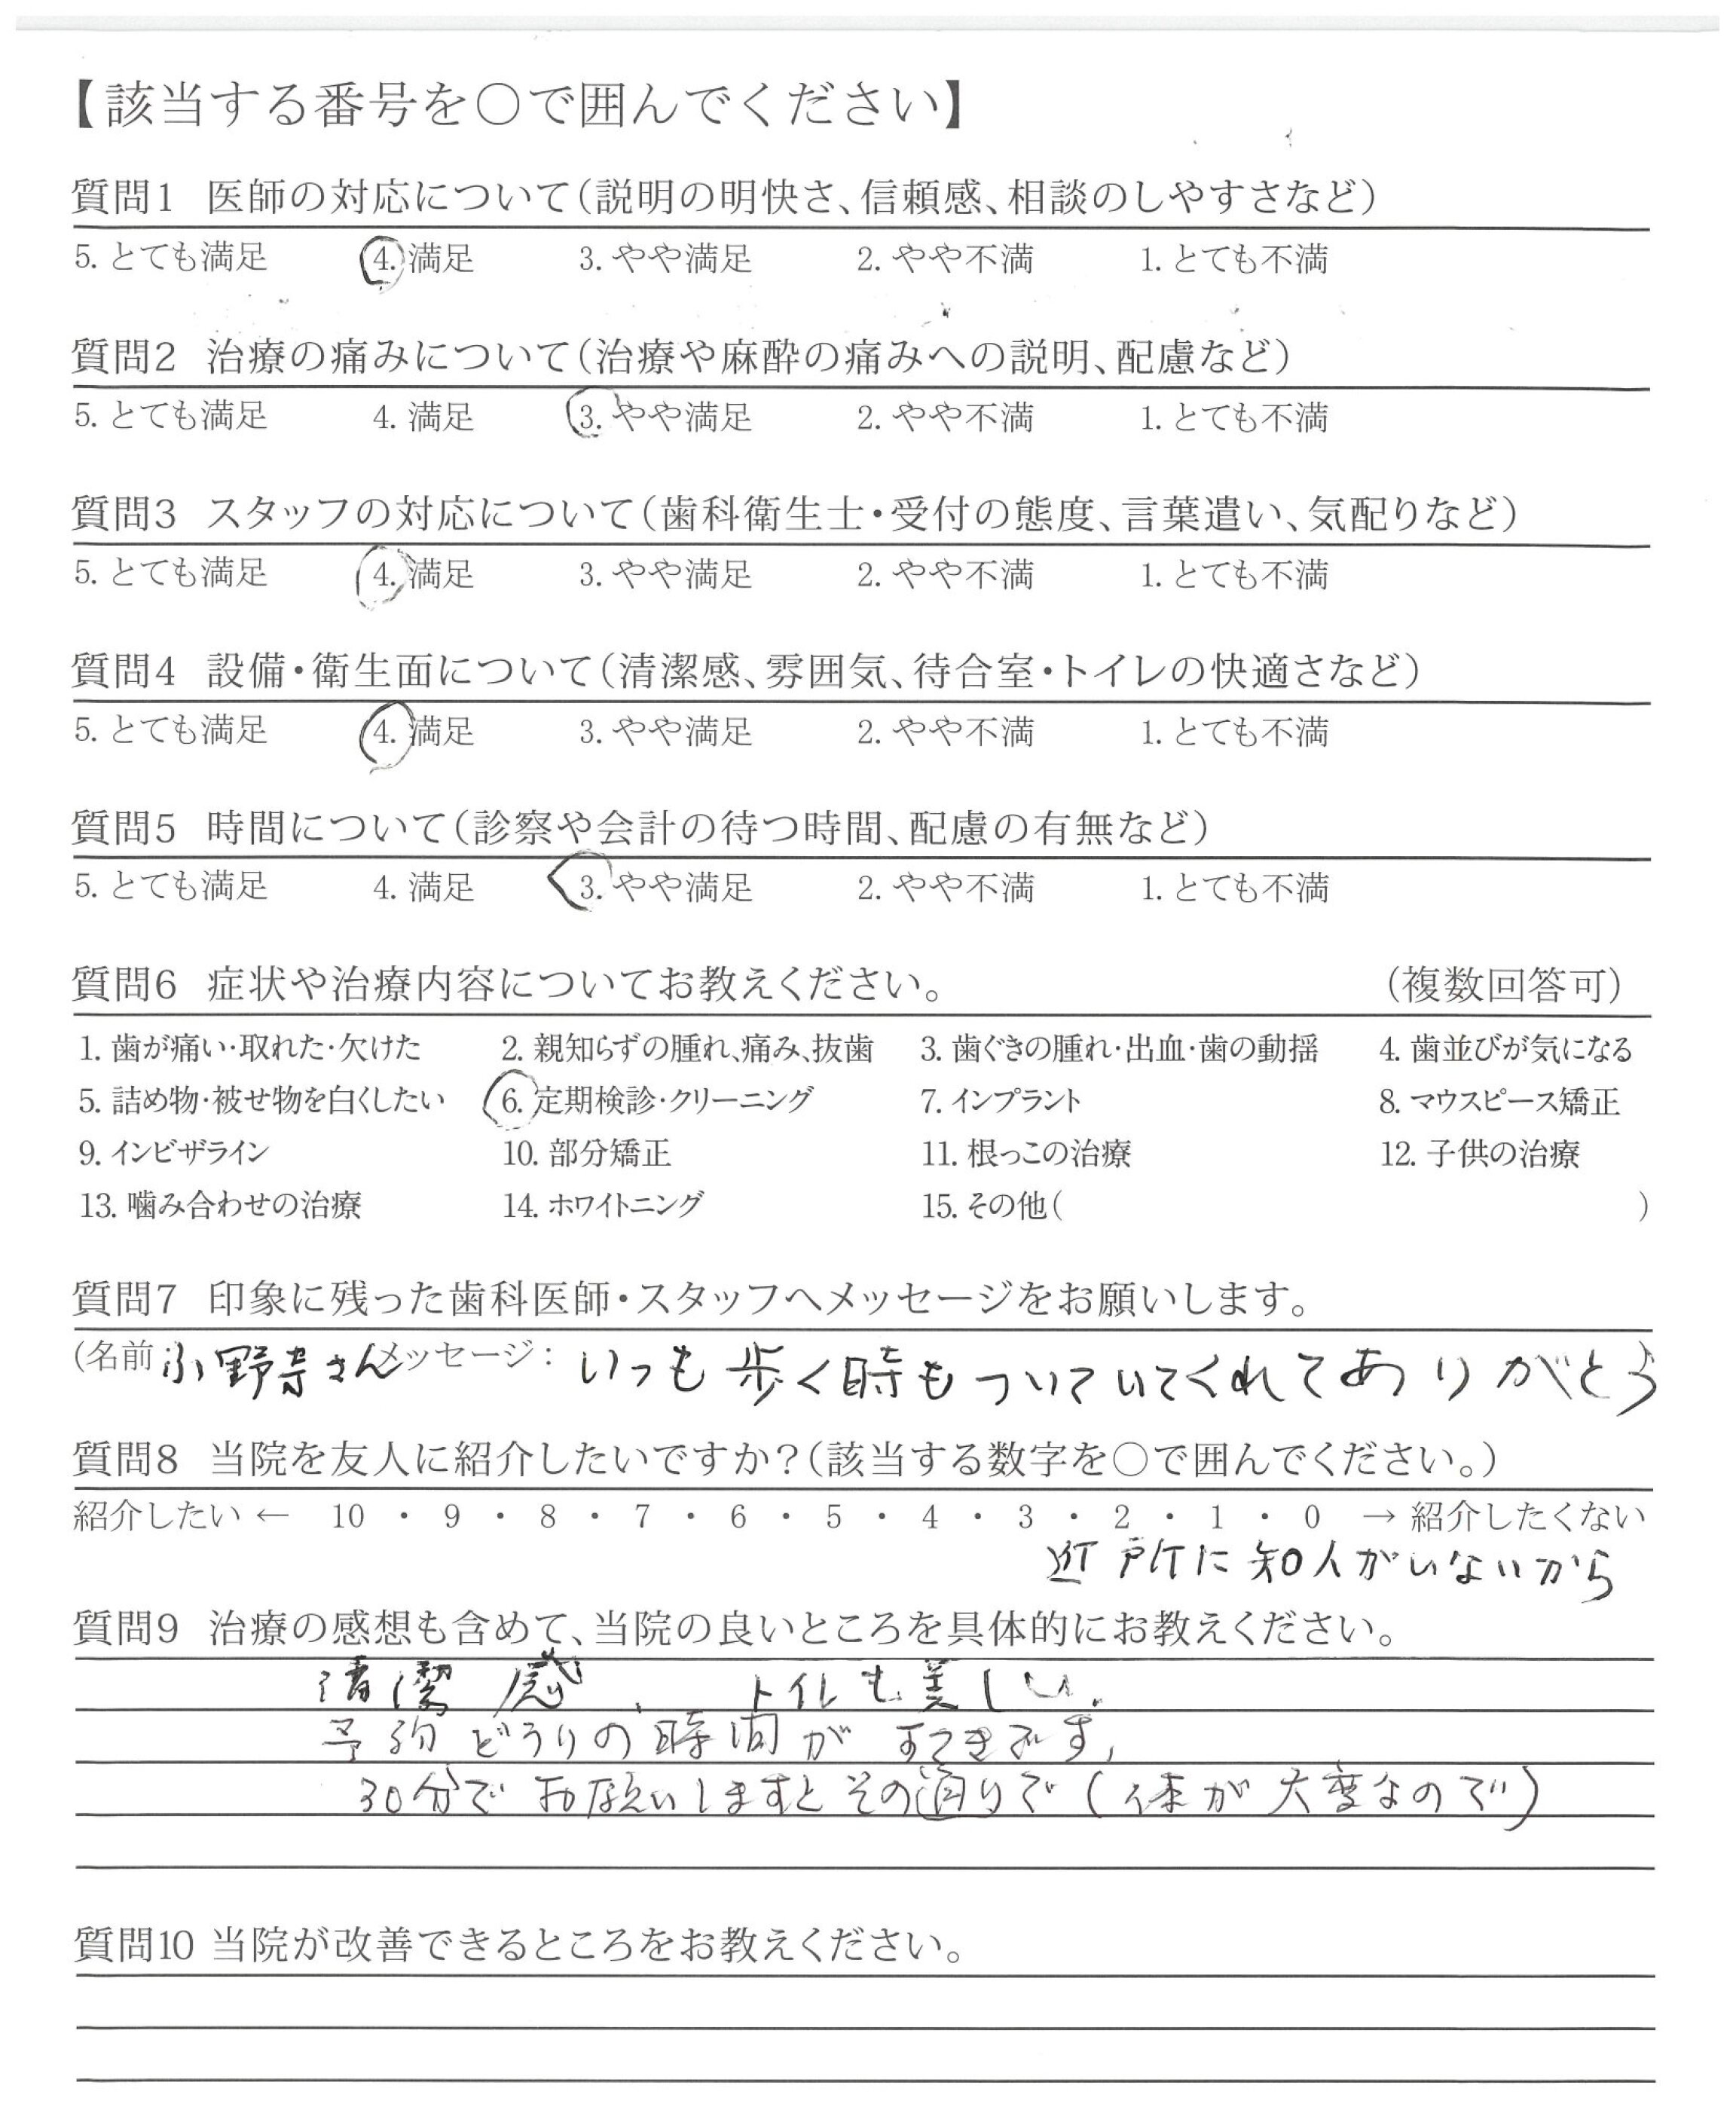 【該当する番号を〇で囲んでください】
質問1 医師の対応について(説明の明快さ、信頼感、相談のしやすさなど)
5. とても満足 4. 満足 3. やや満足 2. やや不満 1. とても不満
質問2 治療の痛みについて(治療や麻酔の痛みへの説明、配慮など)
5. とても満足 4. 満足 3. やや満足 2. やや不満 1. とても不満
質問3 スタッフの対応について(歯科衛生士・受付の態度、言葉遣い、気配りなど)
5. とても満足 4. 満足 3. やや満足 2. やや不満 1. とても不満
質問4 設備・衛生面について(清潔感、雰囲気、待合室・トイレの快適さなど)
5. とても満足 4. 満足 3. やや満足 2. やや不満 1. とても不満
質問5 時間について(診察や会計の待つ時間、配慮の有無など)
5. とても満足 4. 満足 3. やや満足 2. やや不満 1. とても不満
質問6 症状や治療内容についてお教えください。 (複数回答可)
1. 歯が痛い・取れた・欠けた 2. 親知らずの腫れ、痛み、抜歯 3. 歯ぐきの腫れ・出血・歯の動揺 4. 歯並びが気になる
5. 詰め物・被せ物を白くしたい 6. 定期検診・クリーニング 7. インプラント 8. マウスピース矯正
9. インビザライン 10. 部分矯正 11. 根っこの治療 12. 子供の治療
13. 噛み合わせの治療 14. ホワイトニング 15. その他( )
質問7 印象に残った歯科医師・スタッフへメッセージをお願いします。
(名前 小野寺さん メッセージ: いつも歩く時もついていてくれてありがとう
質問8 当院を友人に紹介したいですか?(該当する数字を〇で囲んでください。)
紹介したい ← 10 ・ 9 ・ 8 ・ 7 ・ 6 ・ 5 ・ 4 ・ 3 ・ 2 ・ 1 ・ 0 → 紹介したくない
近所に知人がいないから
質問9 治療の感想も含めて、当院の良いところを具体的にお教えください。
清潔感、トイレも美しい。
予約どうりの時間がすてきです、
30分でお願いしますとその通りで(体が大変なので)
質問10 当院が改善できるところをお教えください。